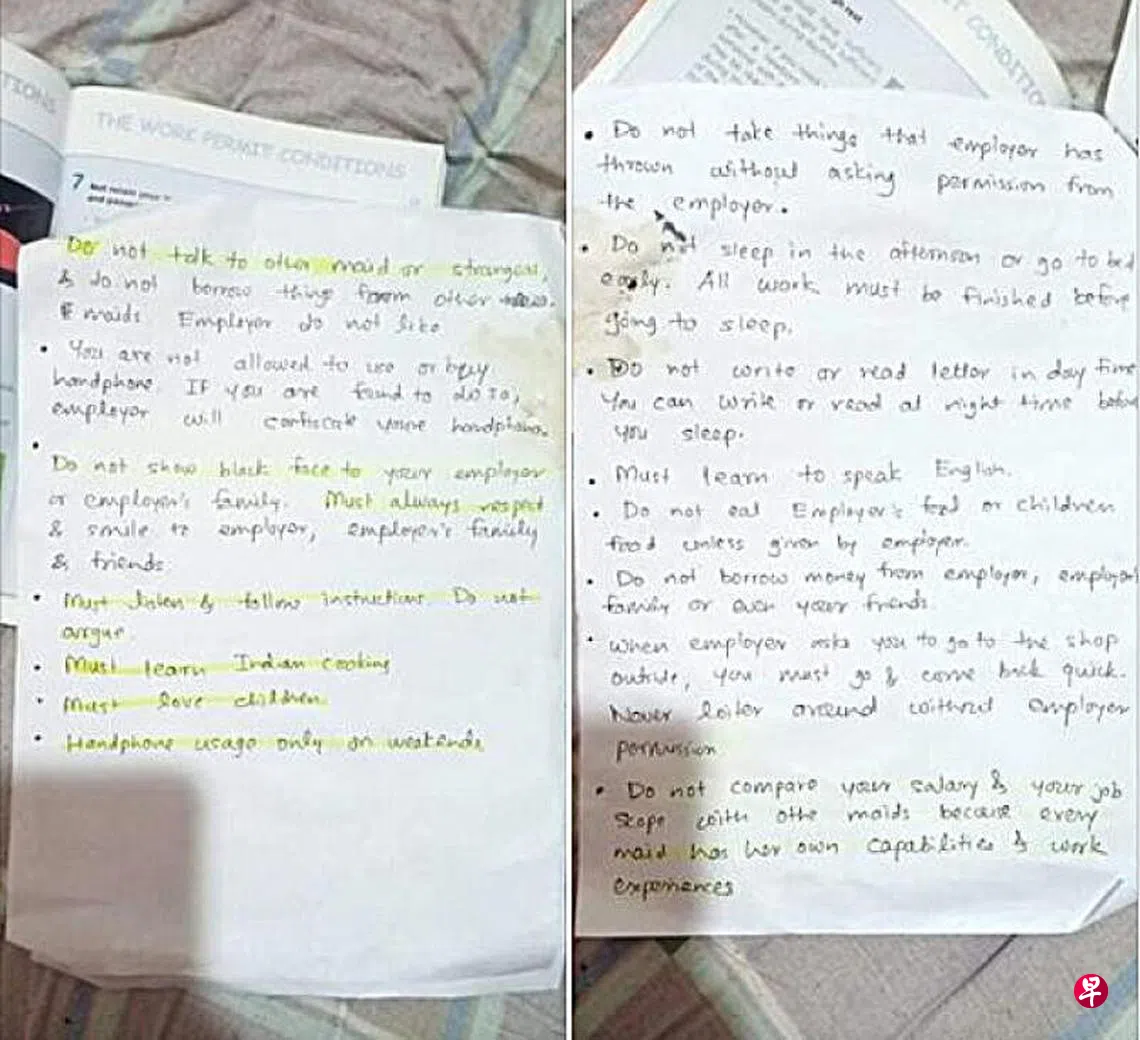 TIONS
THE WORK PERMIT CONDITIONS
7
Do not talk to other maid or strangers,
& do not borrow thing form other
maids. Employer do not like
• You are not allowed to use or buy
handphone. If you are found to do so,
employer will confiscate your handphone.
•
Do not show black face to your employer
or employer's family. Must always respect
& smile to employer, employer's family
& friends
• Must listen & follow instructions. Do not
argue.
• Must learn Indian cooking
• Must love children.
• Handphone usage only on weekends
T CONDITIO
• Do not take things that employer has
thrown without asking permission from
the employer.
• Do not sleep in the afternoon or go to bed
early. All work must be finished before
going to sleep.
• Do not write or read letter in day time
You can write or read at night time before
you sleep.
• Must learn to speak English.
• Do not eat Employer's food or children
food unless given by employer.
• Do not borrow money from employer, employer
family or even your friends.
• When employer asks you to go to the shop
outside, you must go & come back quick.
Never loiter around without employer
permission
• Do not compare your salary & your job
scope with othe maids because every
maid has her own capabilities & work
experiences
早